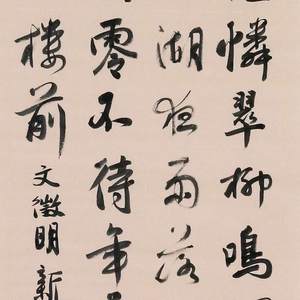 憐翠柳鳴
湖雨落
零不待年
樓前文徵明新